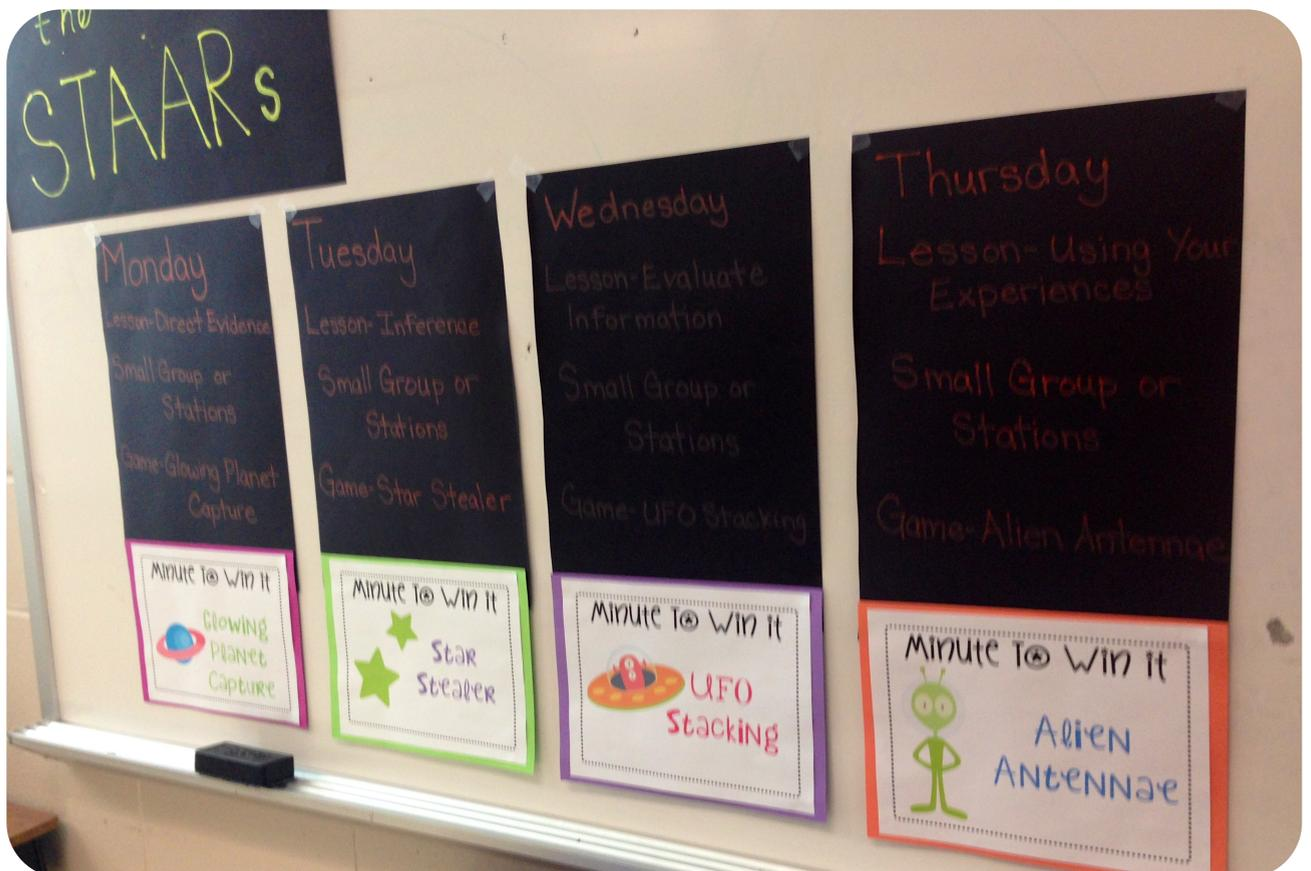 the
STAARs
Monday
Lesson-Direct Evidence
Small Group or
Stations
Game-Glowing Planet
Capture
Minute To Win it
Glowing
Planet
Capture
Tuesday
Lesson-Inference
Small Group or
Stations
Game-Star Stealer
Minute To Win it
Star
Stealer
Wednesday
Lesson-Evaluate
Information
Small Group or
Stations
Game-UFO Stacking
Minute To Win it
UFO
Stacking
Thursday
Lesson-Using Your
Experiences
Small Group or
Stations
Game-Alien Antennae
Minute To Win it
Alien
Antennae